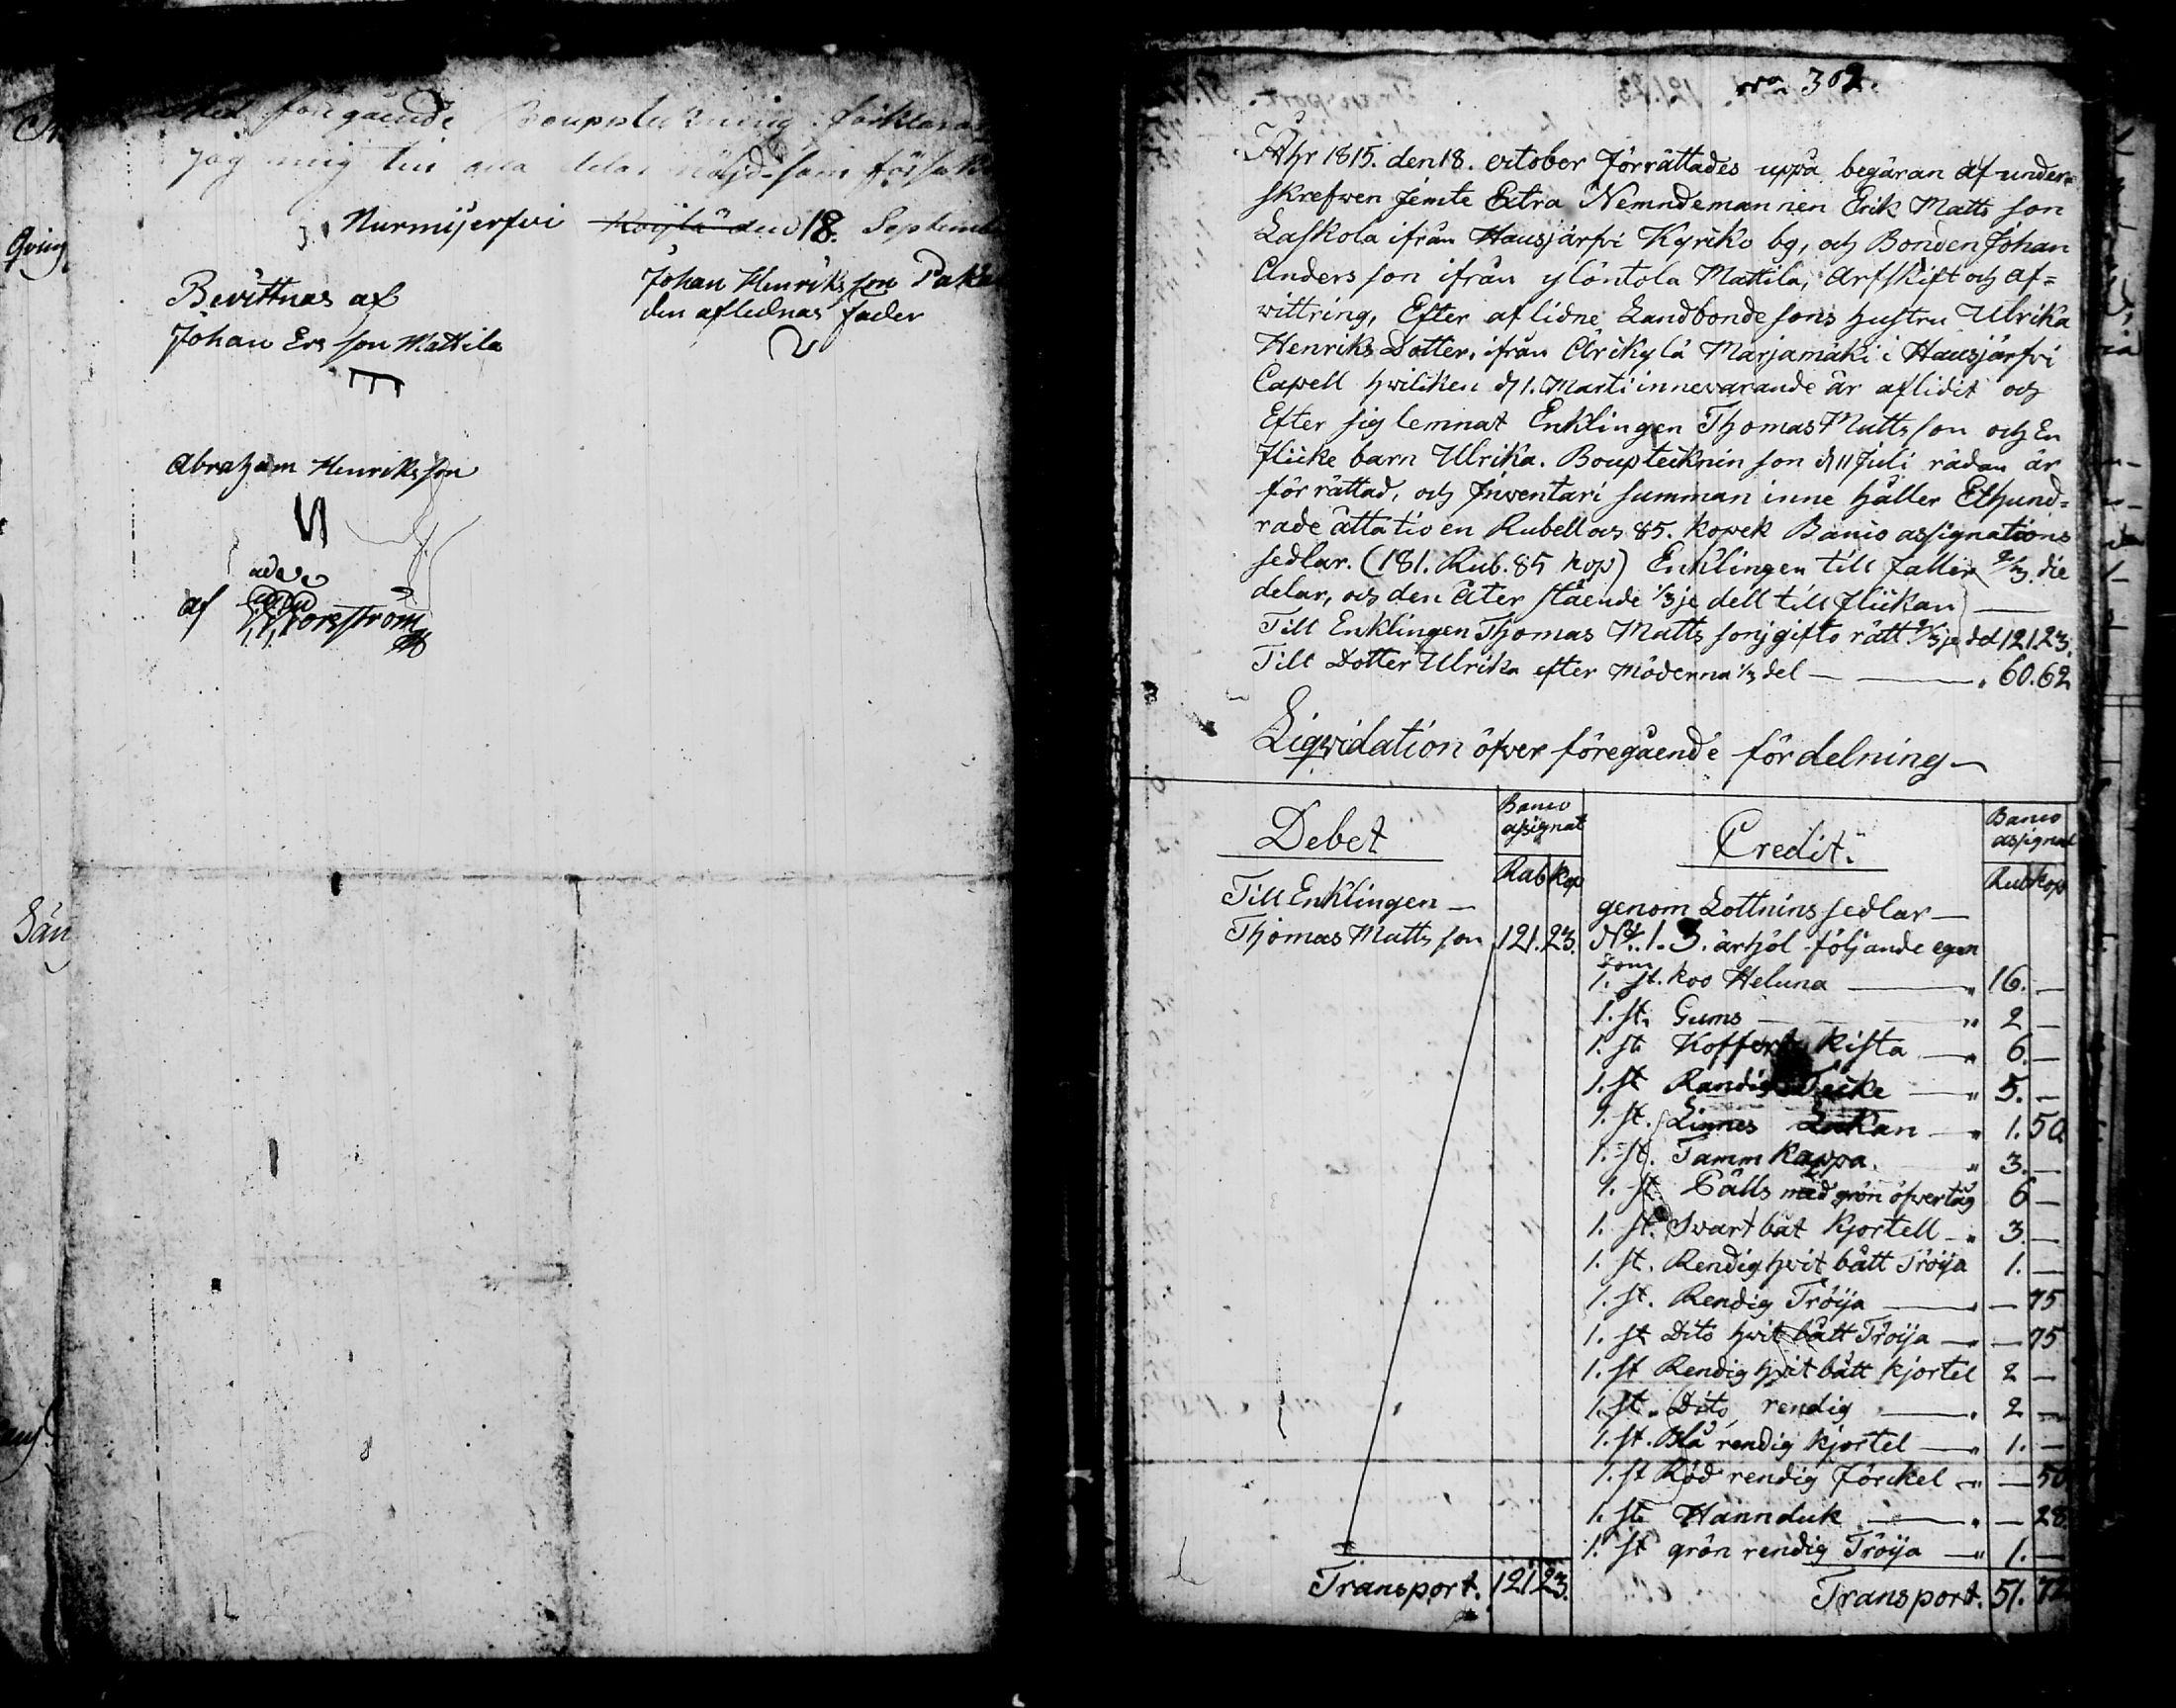 Med föregående Bouppteckning förklarar
jag mig till alla delar nöjd som försäkr
Nurmijerfvi Kÿylä den 18. Septemb
Johan Henriksson Pak
den aflednas fader
Bevittnas af
Johan Ers son Mattila
Abraham Henriksson
af
No 302.
Åhr 1815. den 18. october förrättades uppå begäran af under=
skrefwen Jemte Extra Nemndemannen Erik Matts son
Laskola ifrån Hausjärfvi Kyrko by, och Bonden Johan
Anders son ifrån ylöntola Mattila, Arfskift och af=
wittring, Efter aflidne Landbonde sons hustru Ulrika
Henriks Dotter, ifrån Arikylä Marjamäki i Hausjärfvi
Capell hwilken d 1. Marti innevarande år aflidit och
Efter sig lemnat Enklingen Thomas Matts son och En
flicke barn Ulrika. Boupteiknin son d 11 Juli rädan är
förrättad, och Inventari summan inne håller Ethund=
rade åtta tio en Rubell och 85. kopek Banco assignations
sedlar. (181. Rub. 85 kop) Enklingen till faller 2/3 die
delar, och den åter stående 1/3 je dell till flickan —
Till Enklingen Thomas Matts son, gifto rätt 2/3 je del 121.23.
Till Dotter Ulrika efter Möderna 1/3 del — — 60.62
Liqvidation öfver föregående fördelning
Debet Banco assignat Credit. Banco assignat
Rub kop Rub kop
Till Enklingen — genom Lottnins sedlar —
Thomas Matts son 121. 23. No. 1. 3. ärhöl följande egen
som
1. st. koo Heluna — 16. —
1. st. Gums — 2 —
1. st Koffert kista — 6. —
1. st Randig Täcke — 5. —
1. st. Linnes Lakan — 1. 50
1. st. Tamm kappa. 3. —
1. st. Pälls med grön öfvertåg 6 —
1. st. Svart båt kjortell — 3. —
1. st. Rendig hvit bått Tröija 1. —
1. st. Rendig Tröija — — 75
1. st Dito hvit bått Tröija — — 75
1. st Rendig hvit bått kjortel 2 —
1. st. Dito rendig — 2 —
1. st. Blå rendig kjortel — 1. —
1. st Röd rendig förckel — — 50
1. st. Hannduk — — 28.
1. st grön rendig Tröija — 1. —
Transport. 121 23. Transport. 51. 7